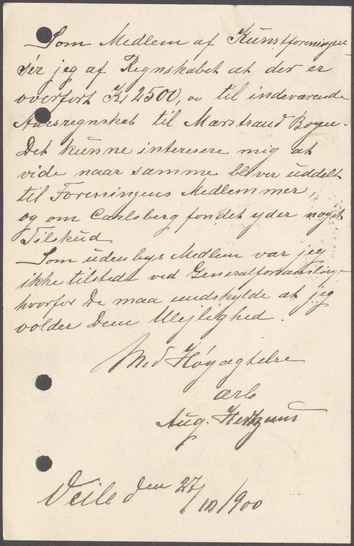 Som Medlem af Kunstforeningen
ser jeg af Regnskabet at der er
overført Kr 2500, oo til indeværende
Aarsregnskab til Marstrand Bogen.
Det kunne interesere mig at
vide naar samme bliver uddelt
til Foreningens Medlemmer,
og om Carlsberg fondet yder noget
Tilskud.
Som udenbys Medlem var jeg
ikke tilstede ved Generalforsamling
hvorfor De maa undskylde at jeg
volder Dem Ulejlighed.
Med Høyagtelse
ærb
Aug.
Veile den 27/10/900